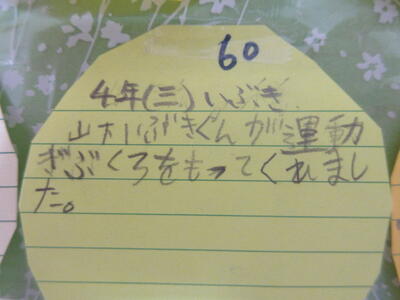 60
4年(三)いぶき
山村いぶきくんが運動
ぎぶくろをもってくれまし
た。